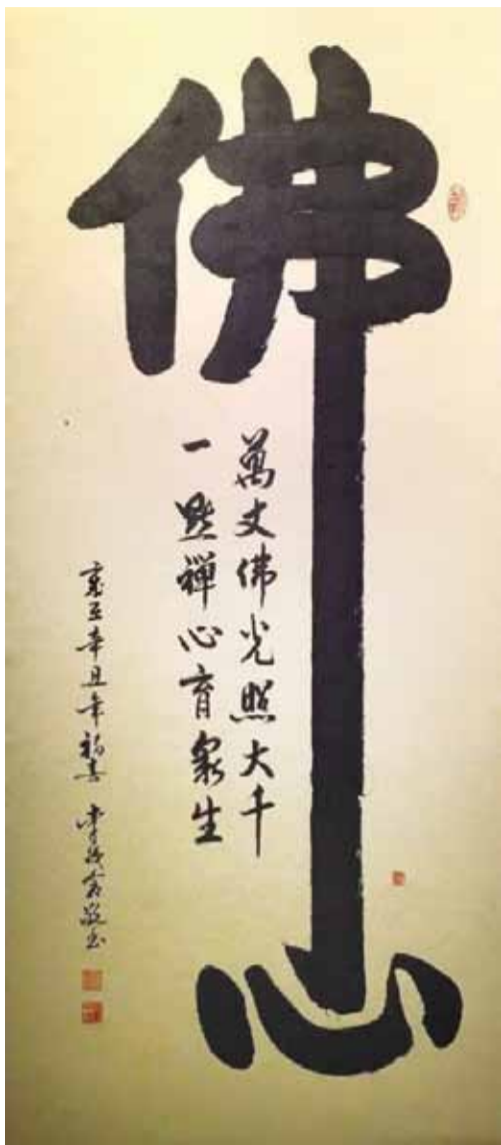 佛心
萬丈佛光照大千
一點禪心育衆生
辛丑年
敬書